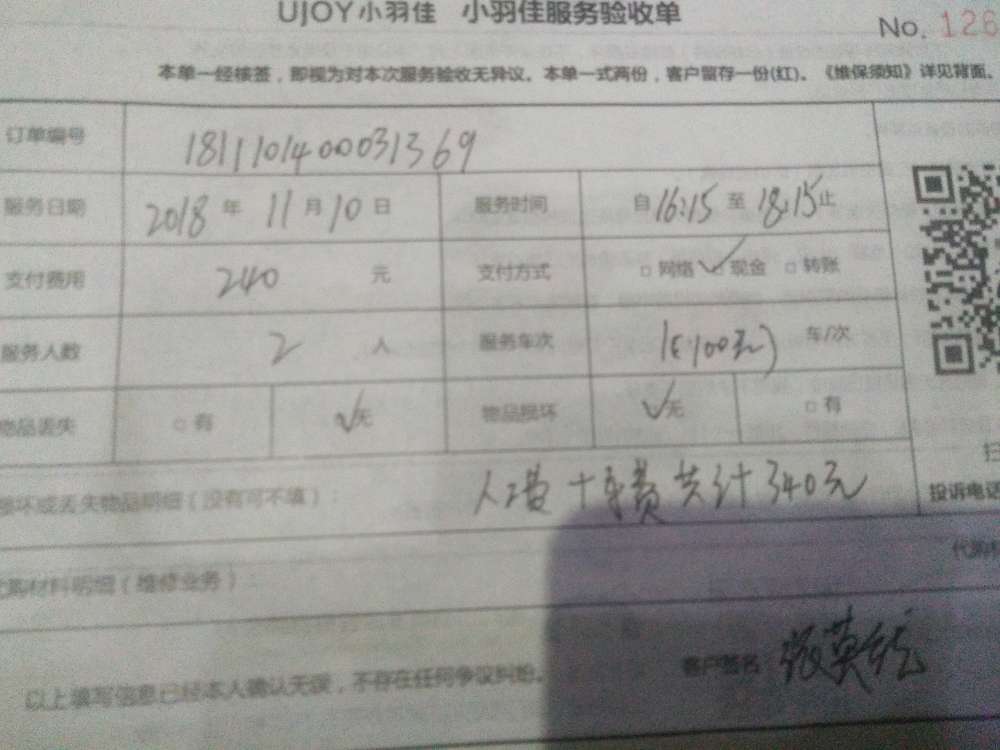 UJOY小羽佳 小羽佳服务验收单
No. 126
本单一经核签，即视为对本次服务验收无异议。本单一式两份，客户留存一份(红)。《维保须知》详见背面。
订单编号 18111014000031369
服务日期 2018 年 11 月 10 日 服务时间 自 16:15 至 18:15 止
支付费用 240 元 支付方式 □ 网络 ✓ 现金 □ 转账
服务人数 2 人 服务车次 1(100元) 车/次
物品丢失 □ 有 ✓ 无 物品损坏 ✓ 无 □ 有
损坏或丢失物品明细（没有可不填）： 人工费十车费共计340元
投诉电话
代购材料明细（维修业务）：
代购
以上填写信息已经本人确认无误，不存在任何争议纠纷。
客户签名 张英